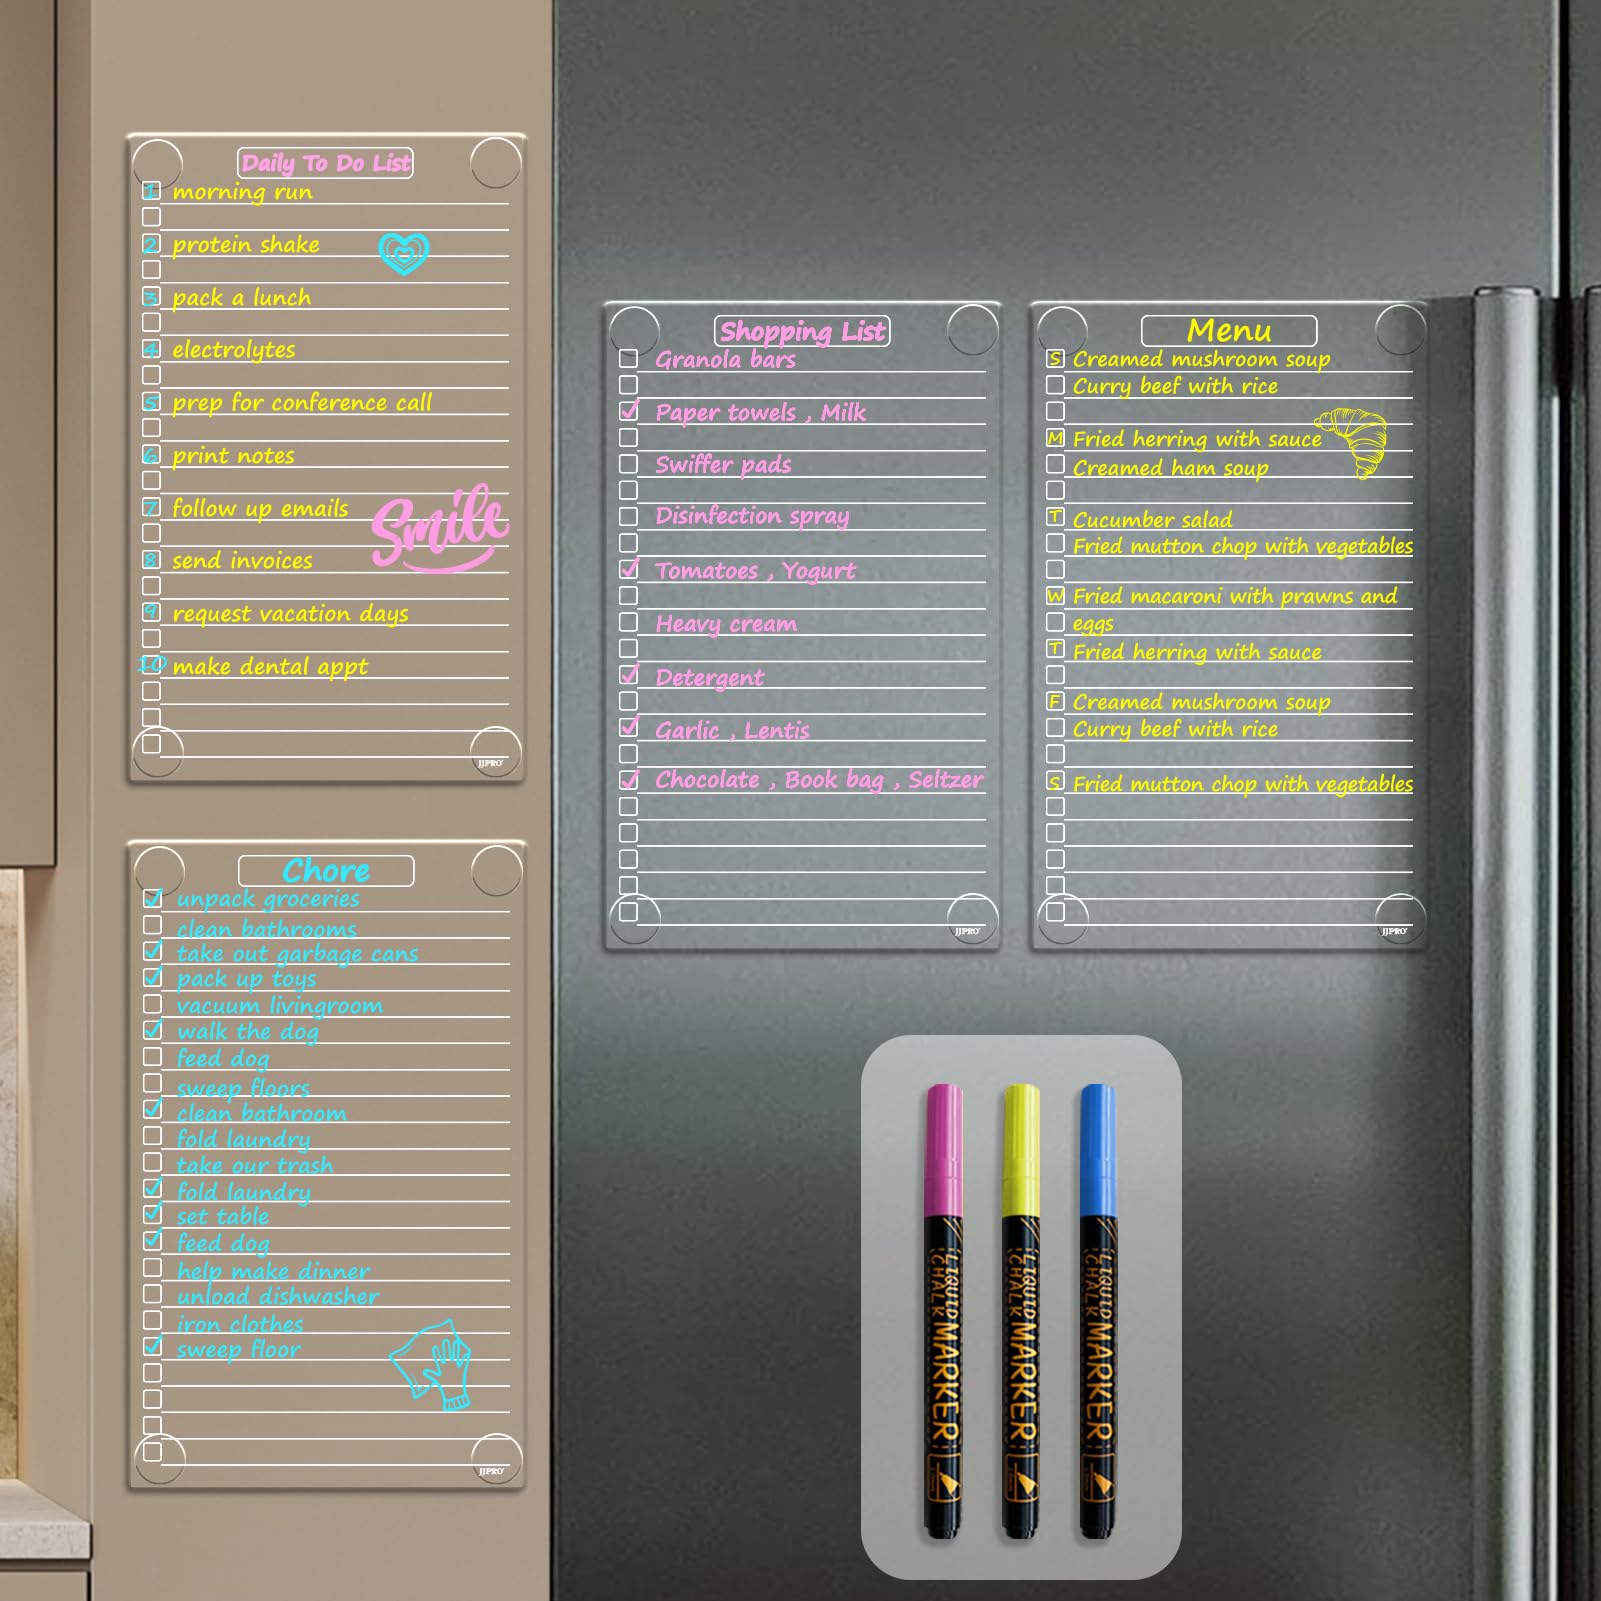 Daily To Do List
1 morning run
2 protein shake
3 pack a lunch
4 electrolytes
5 prep for conference call
6 print notes
7 follow up emails
Smile
8 send invoices
9 request vacation days
10 make dental appt
JJPRO
Shopping List
Granola bars
Paper towels , Milk
Swiffer pads
Disinfection spray
Tomatoes , Yogurt
Heavy cream
Detergent
Garlic , Lentis
Chocolate , Book bag , Seltzer
JJPRO
Menu
S Creamed mushroom soup
Curry beef with rice
M Fried herring with sauce
Creamed ham soup
T Cucumber salad
Fried mutton chop with vegetables
W Fried macaroni with prawns and
eggs
T Fried herring with sauce
F Creamed mushroom soup
Curry beef with rice
S Fried mutton chop with vegetables
JJPRO
Chore
unpack groceries
clean bathrooms
take out garbage cans
pack up toys
vacuum livingroom
walk the dog
feed dog
sweep floors
clean bathroom
fold laundry
take our trash
fold laundry
set table
feed dog
help make dinner
unload dishwasher
iron clothes
sweep floor
JJPRO
LIQUID CHALK MARKER
LIQUID CHALK MARKER
LIQUID CHALK MARKER